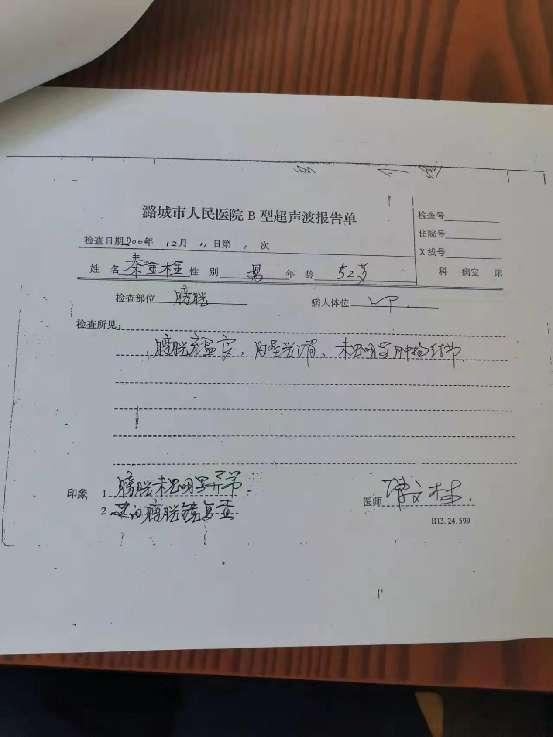 潞城市人民医院 B 型超声波报告单
检查号
住院号
X线号
检查日期2000年 12月 11日第 次
姓名 性别 男 年龄 52岁 科 病室 床
检查部位 膀胱 病人体位
检查所见:
膀胱充盈 内壁光滑、未见明显肿物
印象 1 膀胱未见明显异常.
2. 膀胱镜复查
医师
H12.24.590